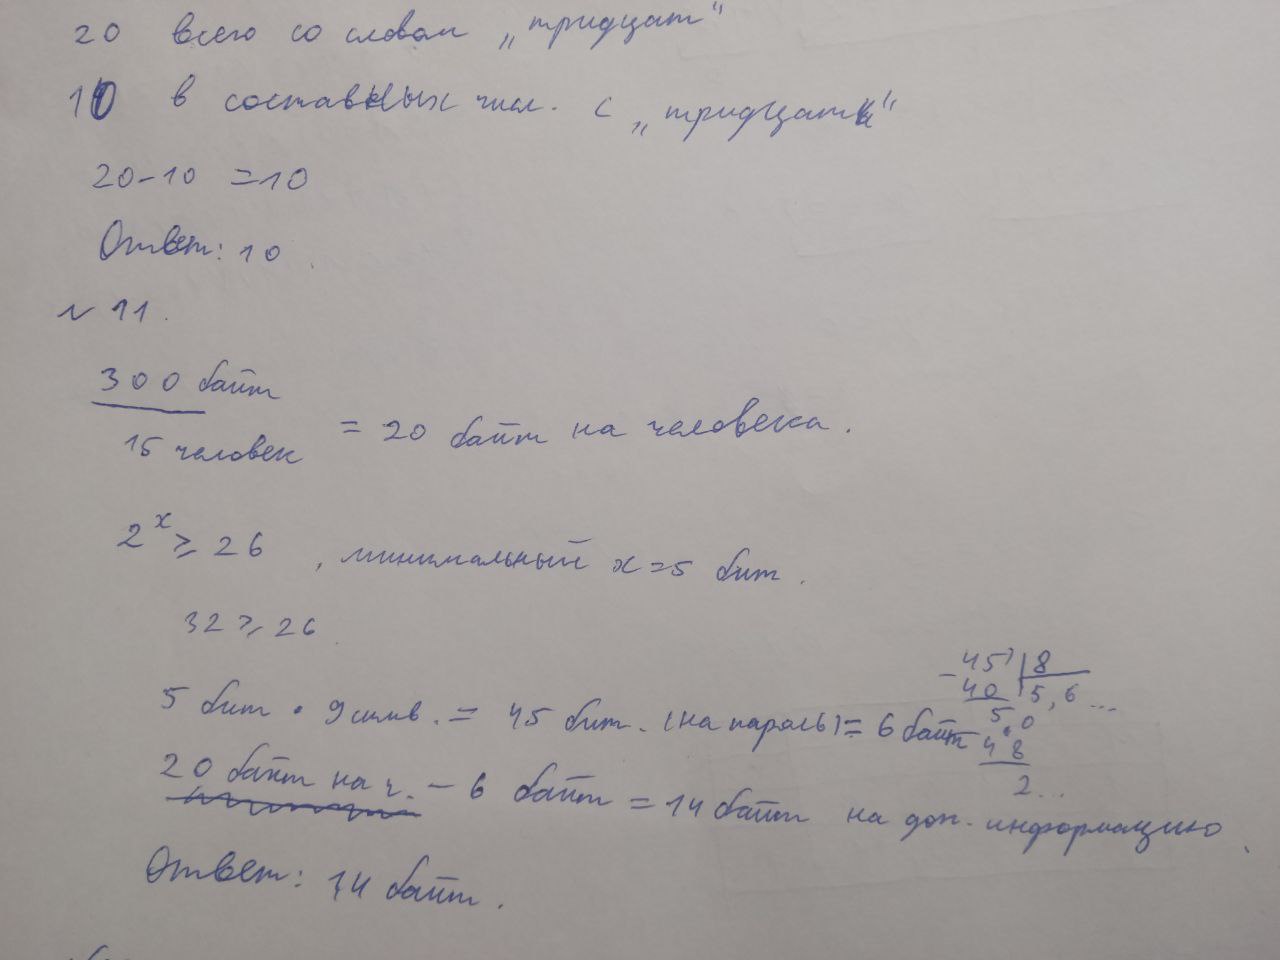 20 всего со словом „тридцат"
10 в составных числ. с „тридцать"
20-10 =10
Ответ: 10
№ 11.
300 байт
15 человек
= 20 байт на человека.
2ˣ ≥ 26 , минимальный x=5 бит.
32 ≥ 26
5 бит · 9 симв. = 45 бит. (на пароль) = 6 байт
45 | 8
- 40 5,6...
5,0
48
2...
20 байт на ч. - 6 байт = 14 байт на доп. информацию.
Ответ: 14 байт.